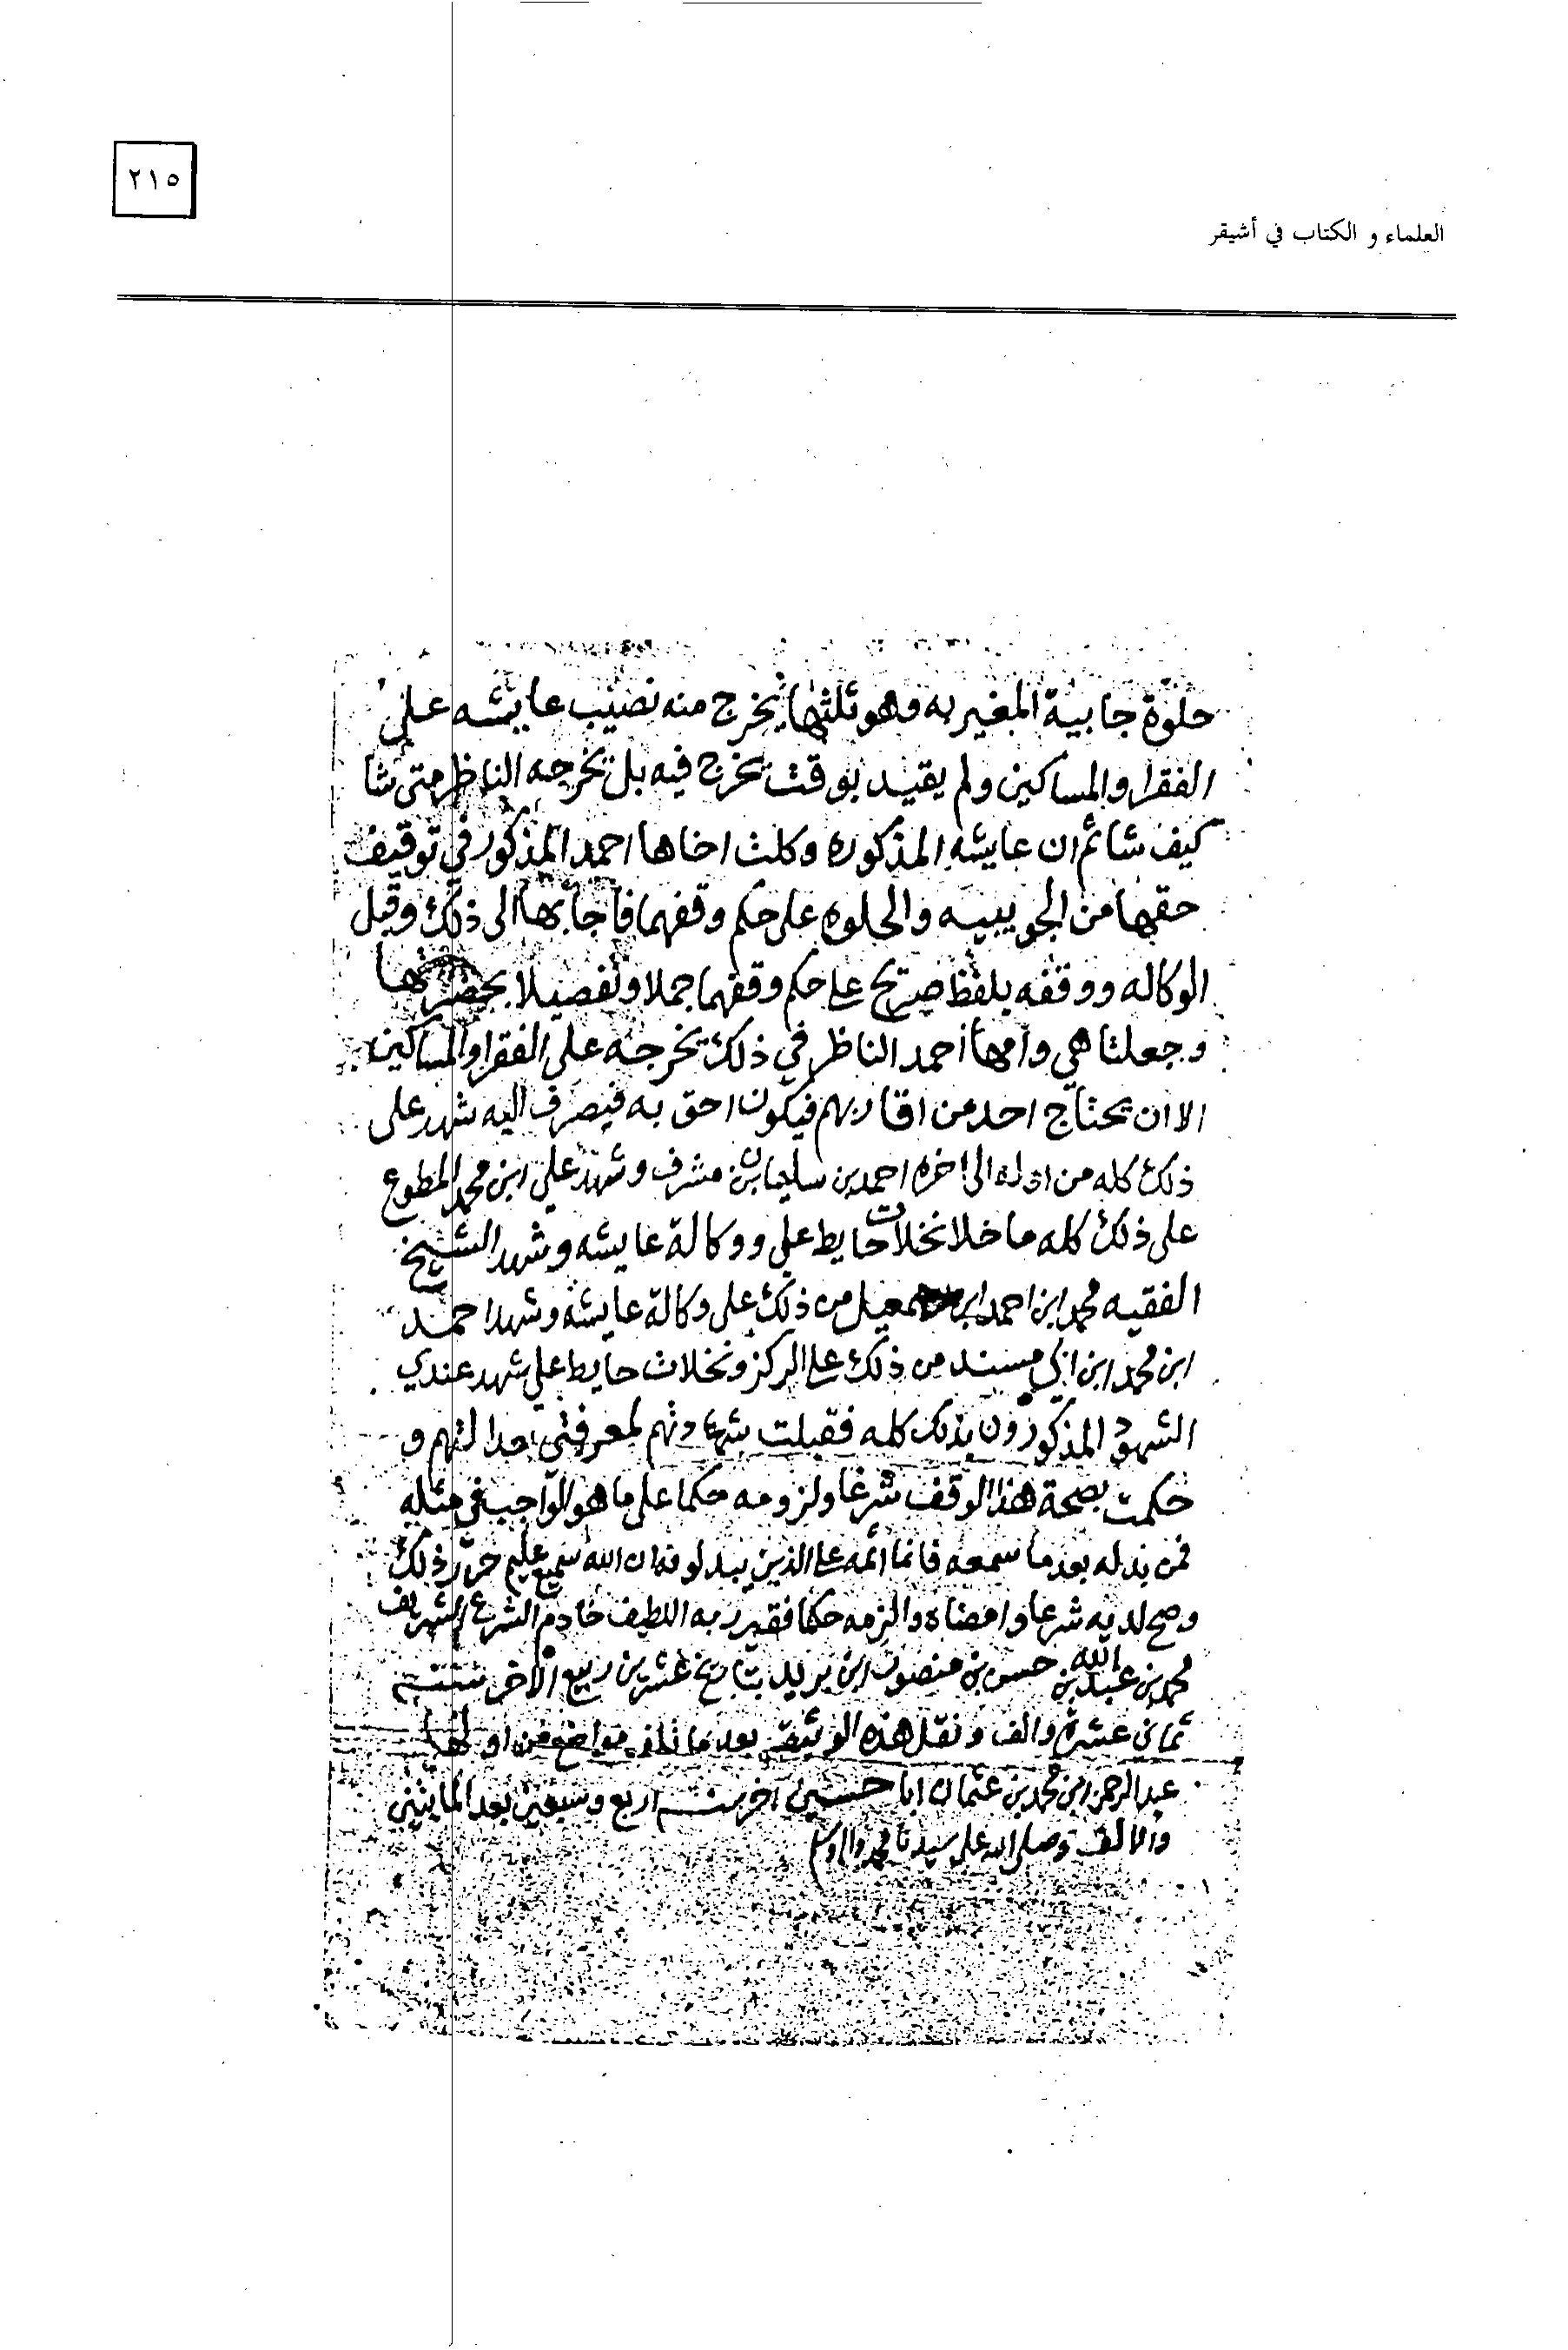 ٢١٥
العلماء و الكتاب في أشيقر
حلوة جابية المغيربه وهو ثلثها يخرج منه نصيب عايشه على
الفقرا والمساكين ولم يقيد بوقت يخرج فيه بل يخرجه الناظر متى شا
كيف شا ثم ان عايشه المذكوره وكلت اخاها احمد المذكور في توقيف
حقها من الجويبيه والحلوه على حكم وقفهما فاجابها الى ذلك وقبل
الوكاله ووقفه بلفظ صريح على حكم وقفهما جملا وتفصيلا بحضرتها
وجعلتا هي وامها احمد الناظر في ذلك يخرجه على الفقرا والمساكين
الا ان يحتاج احد من اقاربهم فيكون احق به فيصرف اليه شهد على
ذلك كله من اوله الى اخره احمد بن سليمان بن مشرف وشهد علي ابن محمد المطوع
على ذلك كله ما خلا نخلات حايط علي ووكالة عايشه وشهد الشيخ
الفقيه محمد ابن احمد ابن سمعيل من ذلك على وكالة عايشه وشهد احمد
ابن محمد ابن ابي مسند من ذلك على الركز ونخلات حايط علي شهد عندي
الشهود المذكورون بذلك كله فقبلت شهادتهم لمعرفتي عدالتهم و
حكمت بصحة هذا الوقف شرعا ولزومه حكما على ما هو الواجب في مثله
فمن بدله بعد ما سمعه فانما اثمه على الذين يبدلونه ان الله سميع عليم حرر ذلك
وصح لديه شرعا وامضاه والزمه حكما فقير ربه اللطيف خادم الشرع الشريف
محمد بن عبد الله بن حسن بن منصور ابن بريد بتاريخ عشرين ربيع الاخر سنة
ثمان عشرة والف ونقل هذه الوثيقه بعد ما تلف مواضع من اولها
عبد الرحمن ابن محمد بن عثمان ابا حسين اخر سنة اربع وسبعين بعد المايتين
والالف وصلى الله على سيدنا محمد واله وسلم